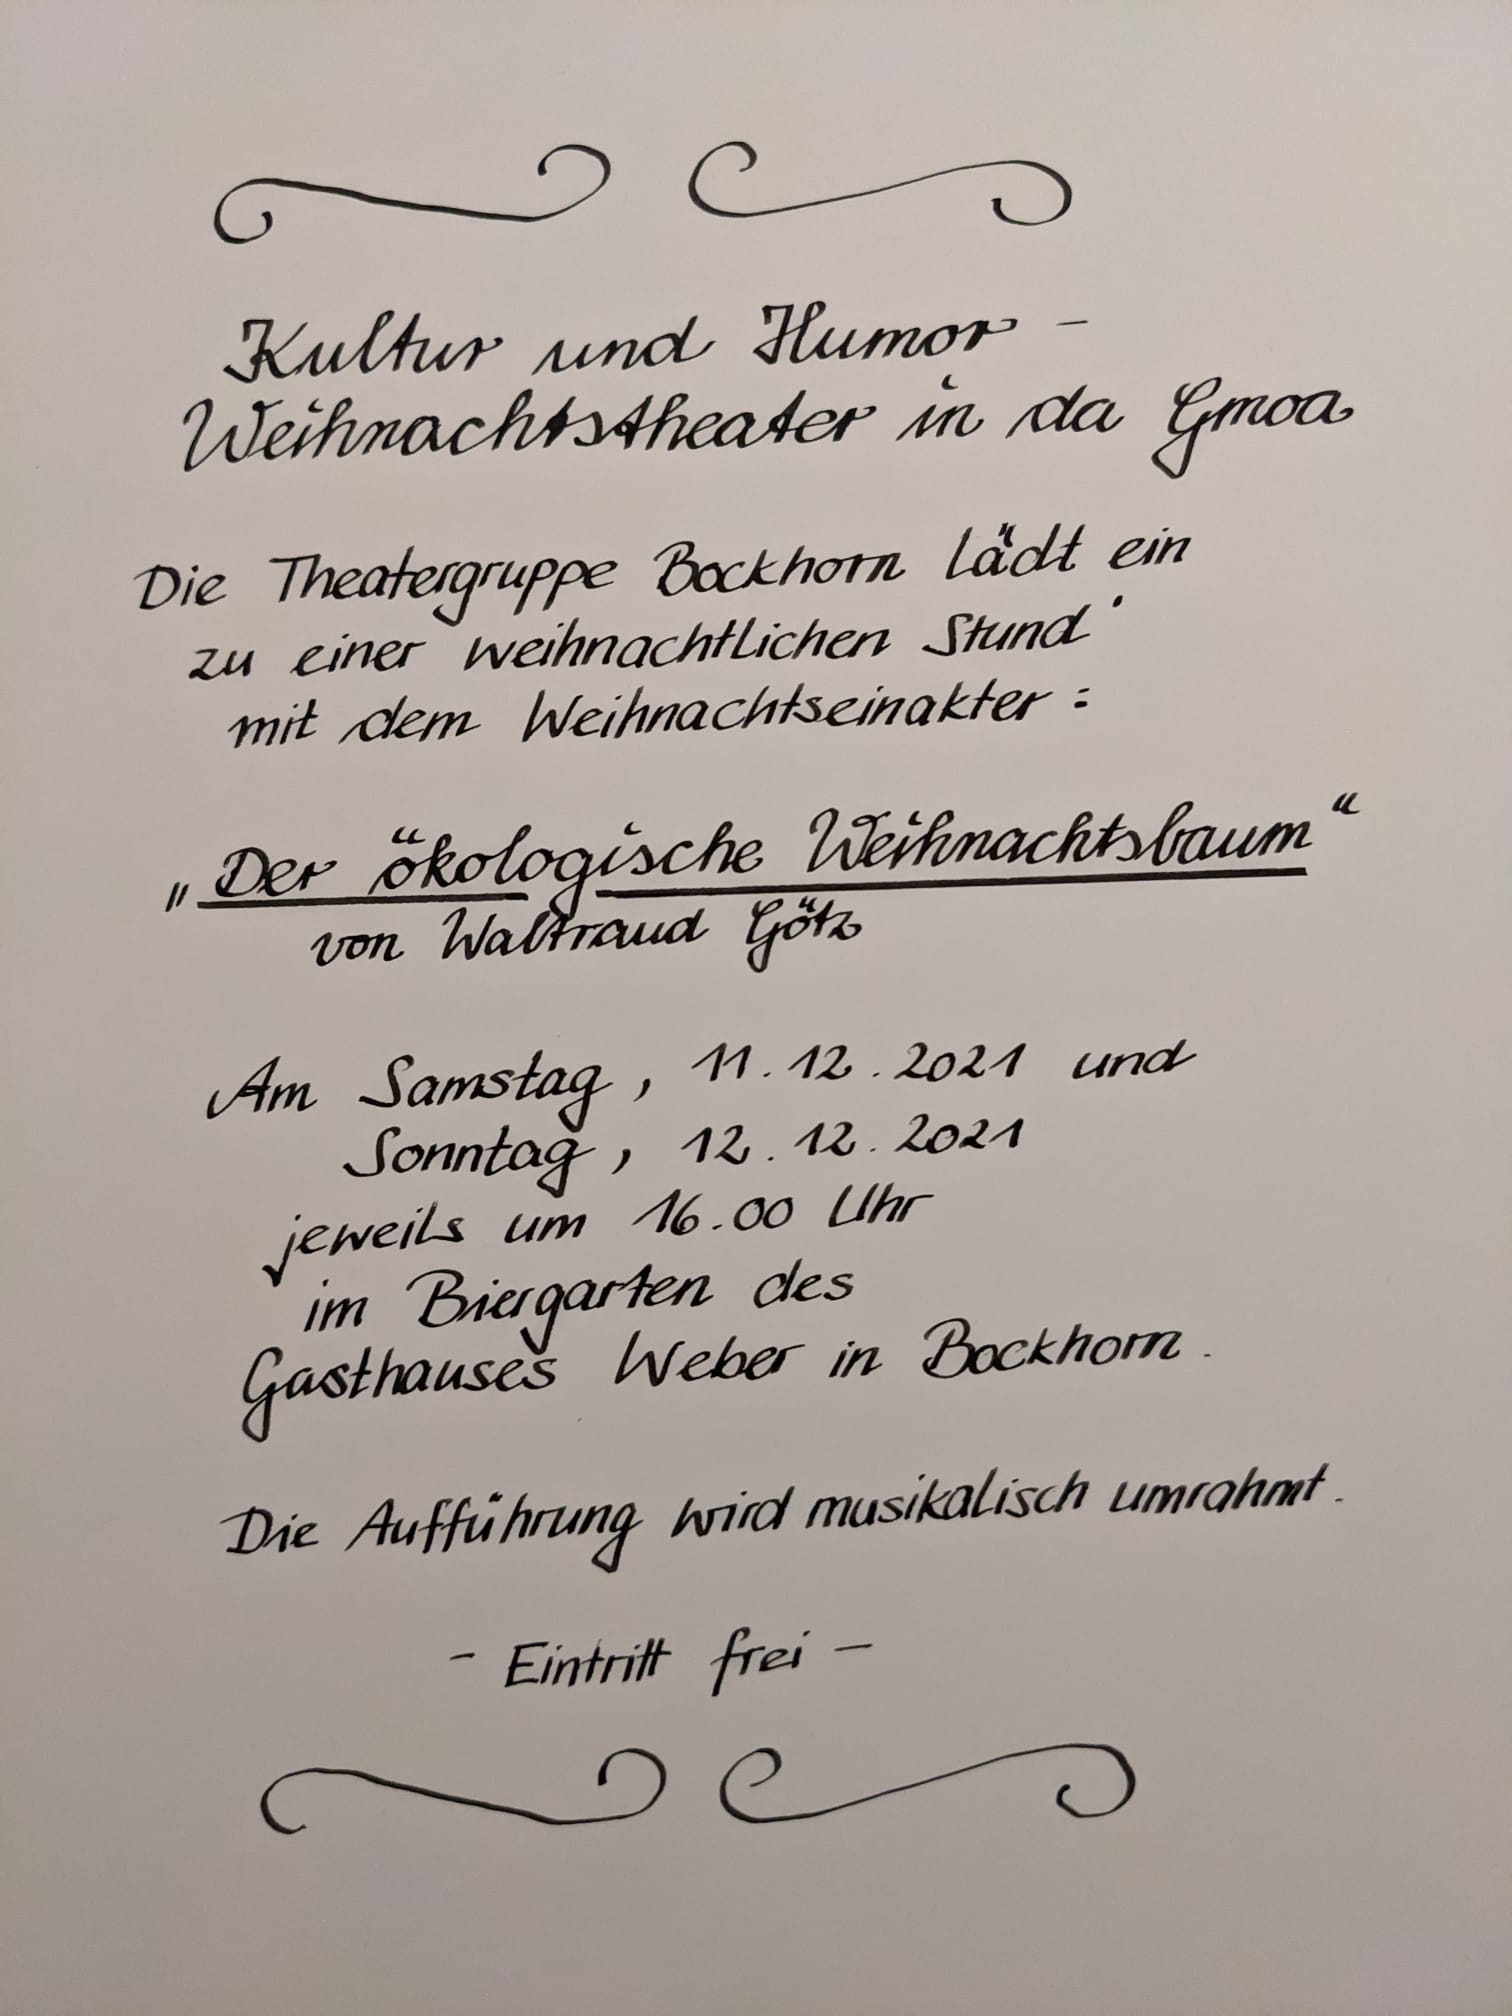 Kultur und Humor -
Weihnachtstheater in da Gmoa
Die Theatergruppe Bockhorn lädt ein
zu einer weihnachtlichen Stund'
mit dem Weihnachtseinakter:
„Der ökologische Weihnachtsbaum“
von Waltraud Götz
Am Samstag, 11.12.2021 und
Sonntag, 12.12.2021
jeweils um 16.00 Uhr
im Biergarten des
Gasthauses Weber in Bockhorn.
Die Aufführung wird musikalisch umrahmt.
- Eintritt frei -